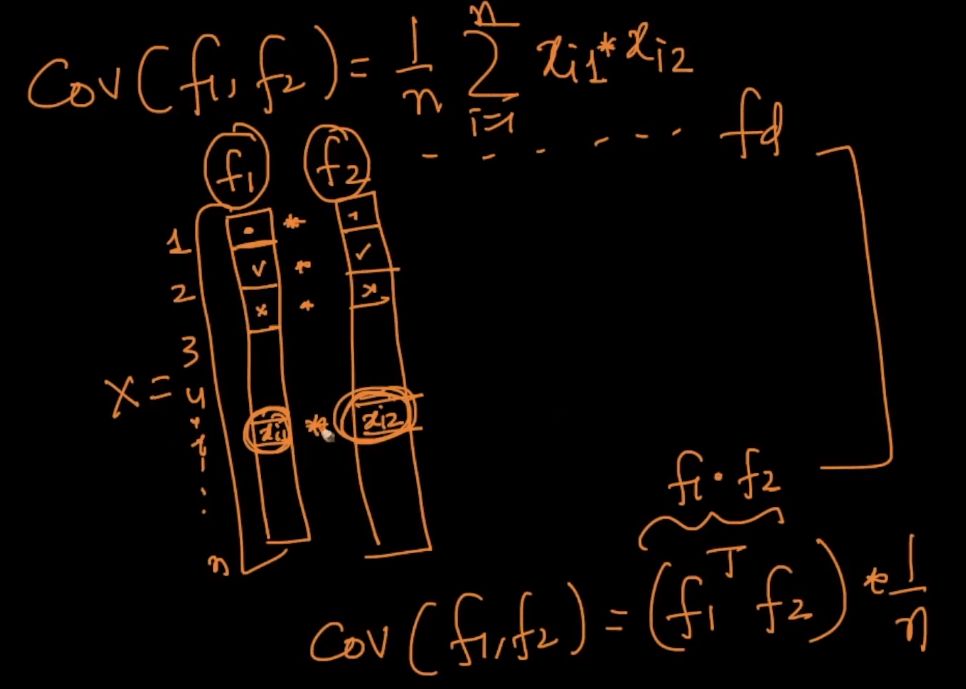 Cov(f₁, f₂) = 1/n ∑ᵢ₌₁ⁿ xᵢ₁ * xᵢ₂
f₁ f₂ - - - - - - fd
1 • * +
✓ * ✓
2 x * x
3
X = 4
xᵢ₁ * xᵢ₂
i
n
f₁ • f₂
Cov(f₁, f₂) = (f₁ᵀ f₂) * 1/n